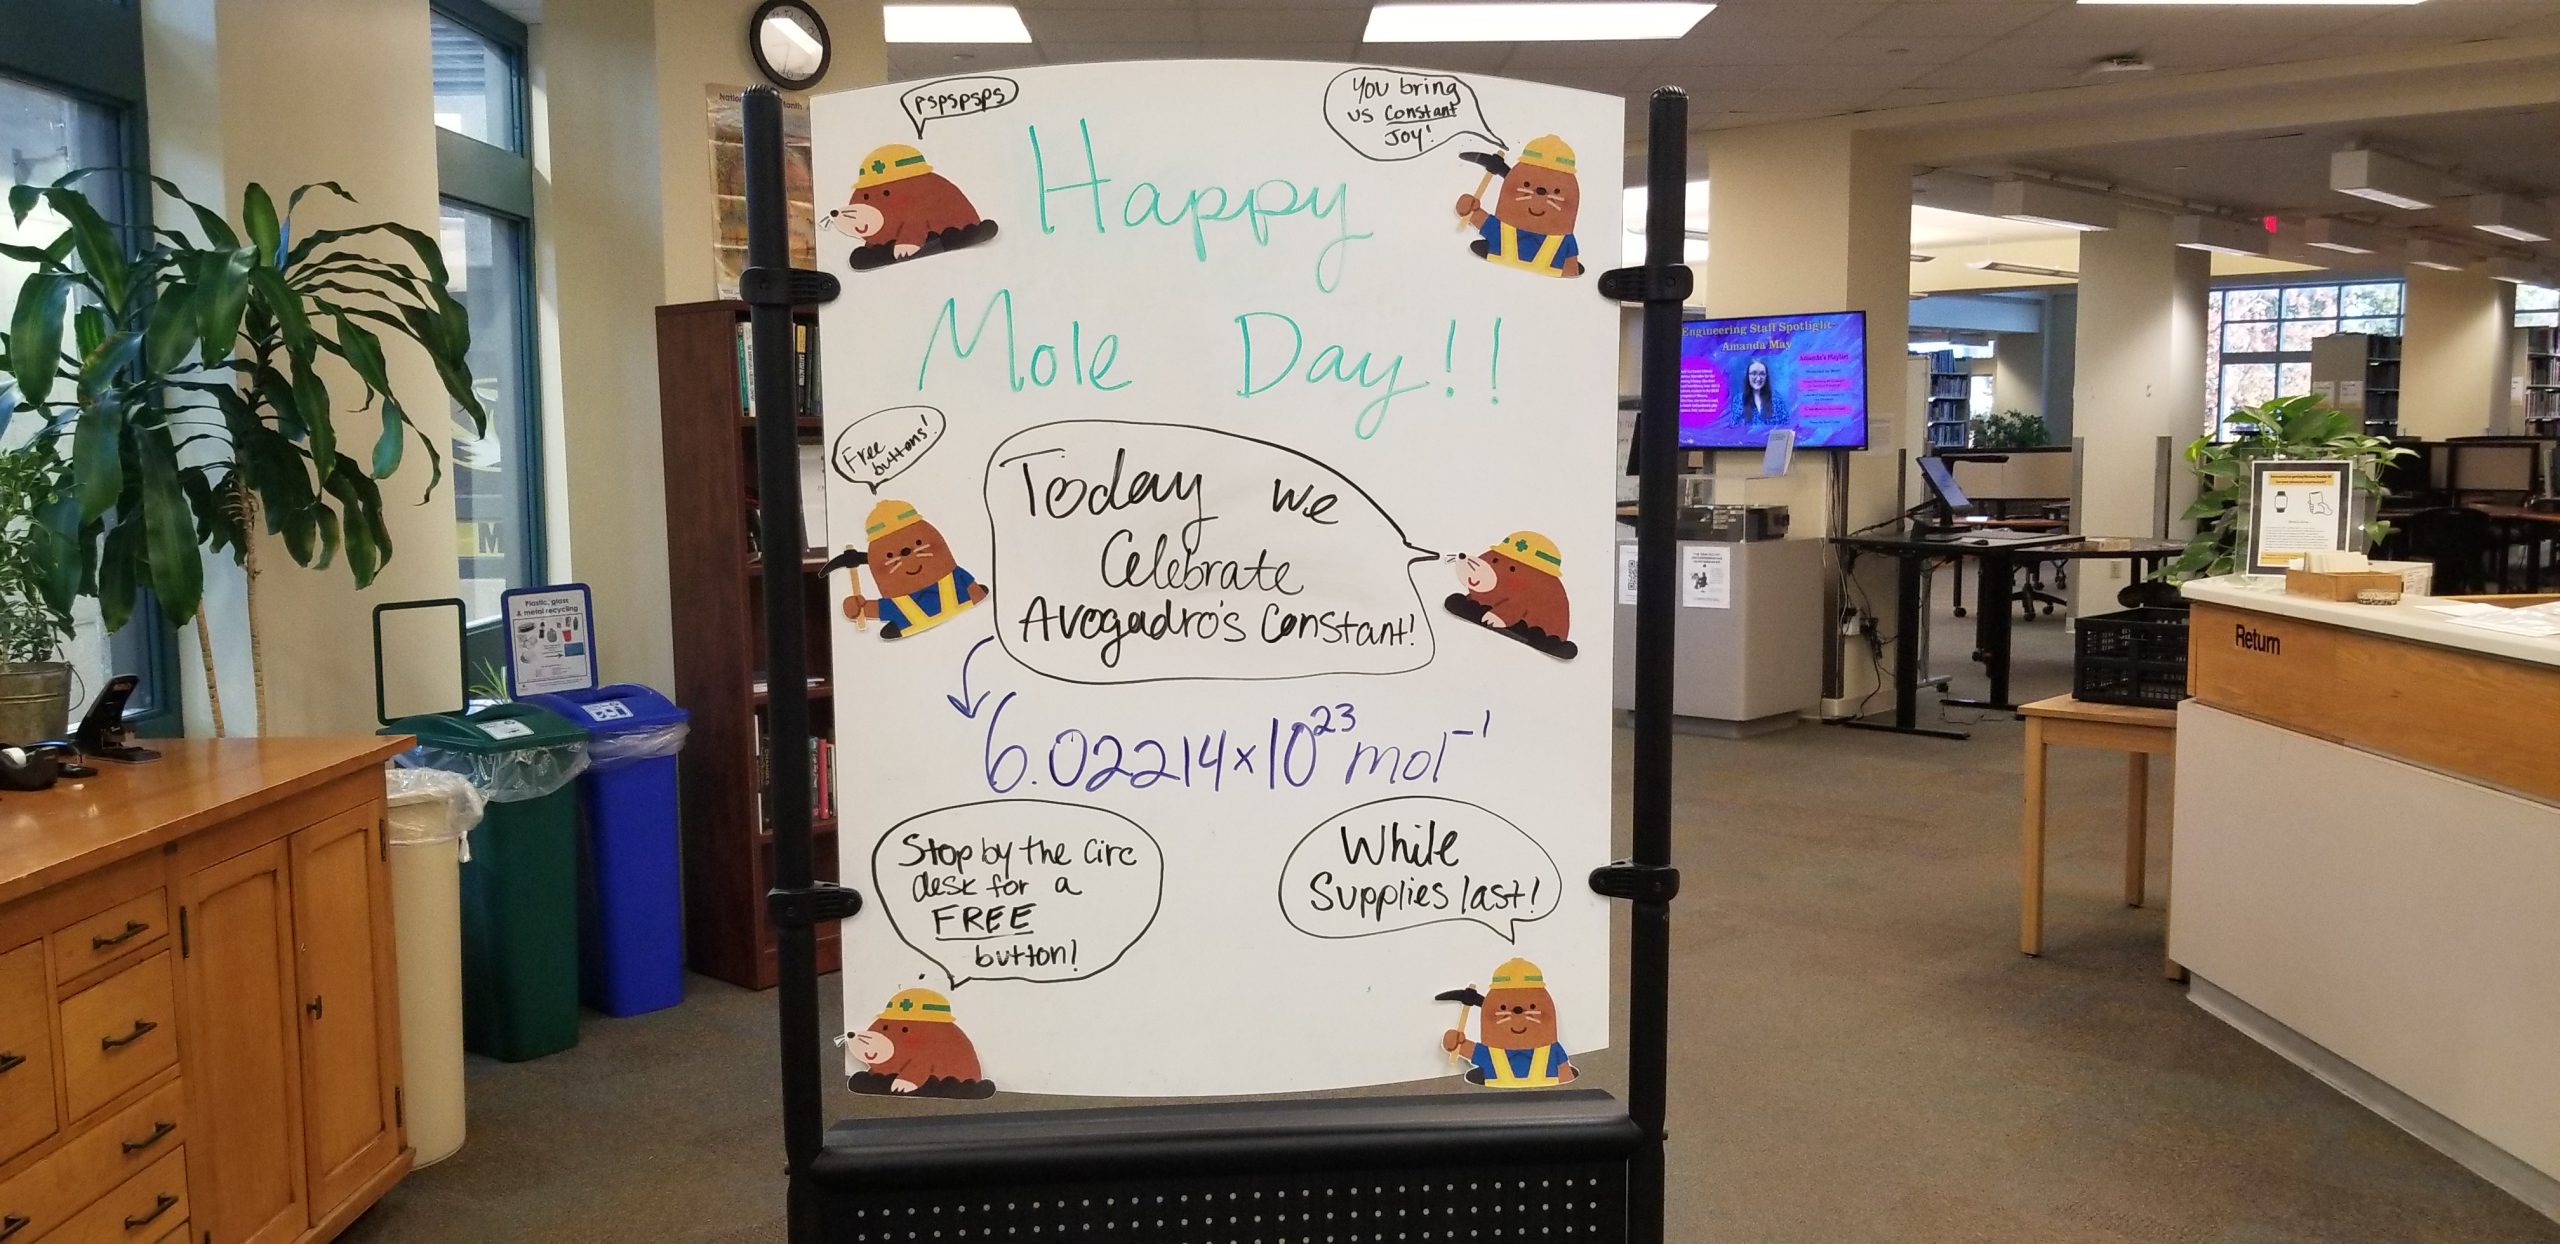 pspspsps
You bring
us Constant
Joy!
Happy
Mole Day!!
Free
buttons!
Today we
Celebrate
Avogadro's Constant!
6.02214×10²³ mol⁻¹
Stop by the Circ
desk for a
FREE
button!
While
Supplies last!
Plastic, glass
& metal recycling
Engineering Staff Spotlight-
Amanda May
Amanda's Playlist
Return